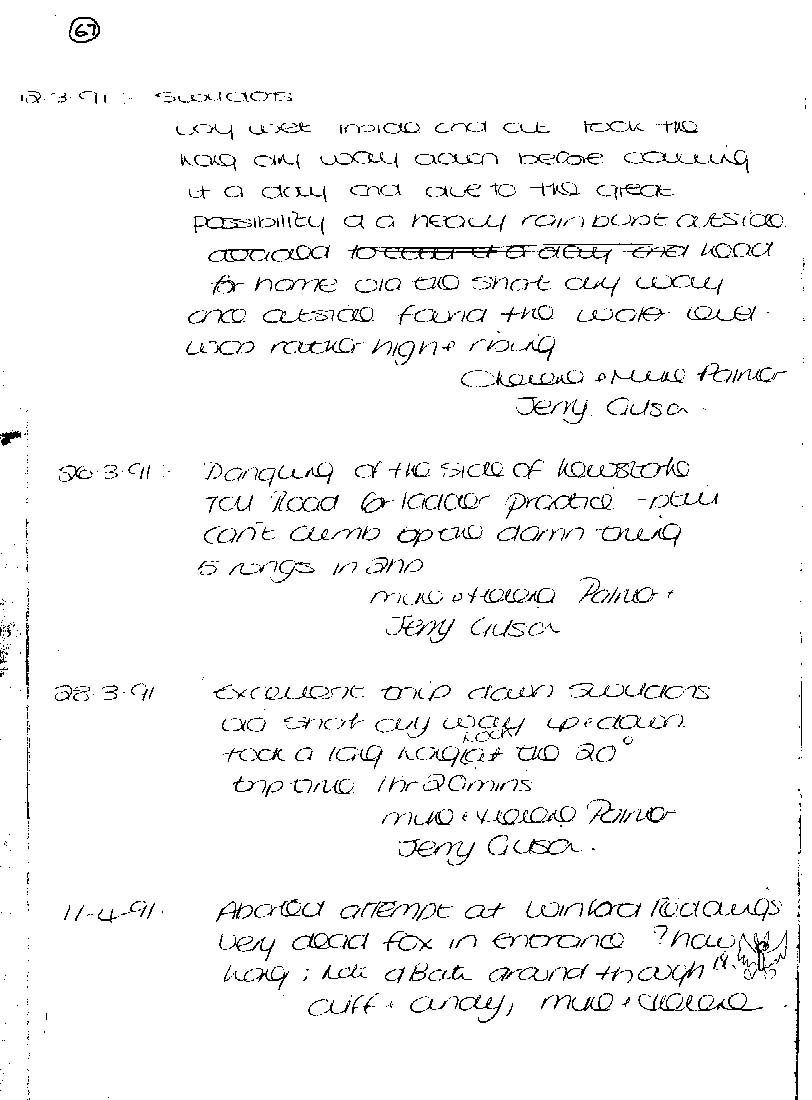 67
12.3.91 :- Swildons
Very wet inside and out took the
long dry way down before calling
it a day and due to the great
possibility of a heavy rain burst outside
decided to call it a day and head
for home via the short dry way
and outside found the water level
was rather high + rising
+ Mike Palmer
Jerry
26.3.91 :- Dangling of the side of
Road for ladder practice - still
can't climb up the damn thing
5 rungs in and
Mike + Palmer +
Jerry
28.3.91 Excellent trip down Swildons
via short dry way up + down
took a long look at the 20°
trip time 1 hr 20 mins
Mike + Palmer
Jerry
11-4-91. Aborted attempt at Winford Red
very dead fox in entrance ? how
long ; around though
Cliff + Andy, Mike +